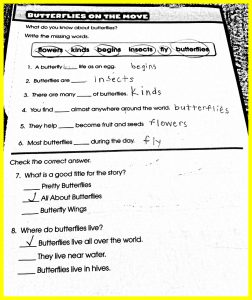 BUTTERFLIES ON THE MOVE
What do you know about butterflies?
Write the missing words.
flowers kinds begins insects fly butterflies
1. A butterfly ____ life as an egg. begins
2. Butterflies are ____ . insects
3. There are many ____ of butterflies. kinds
4. You find ____ almost anywhere around the world. butterflies
5. They help ____ become fruit and seeds. flowers
6. Most butterflies ____ during the day. fly
Check the correct answer.
7. What is a good title for the story?
____ Pretty Butterflies
✓ All About Butterflies
____ Butterfly Wings
8. Where do butterflies live?
✓ Butterflies live all over the world.
____ They live near water.
____ Butterflies live in hives.